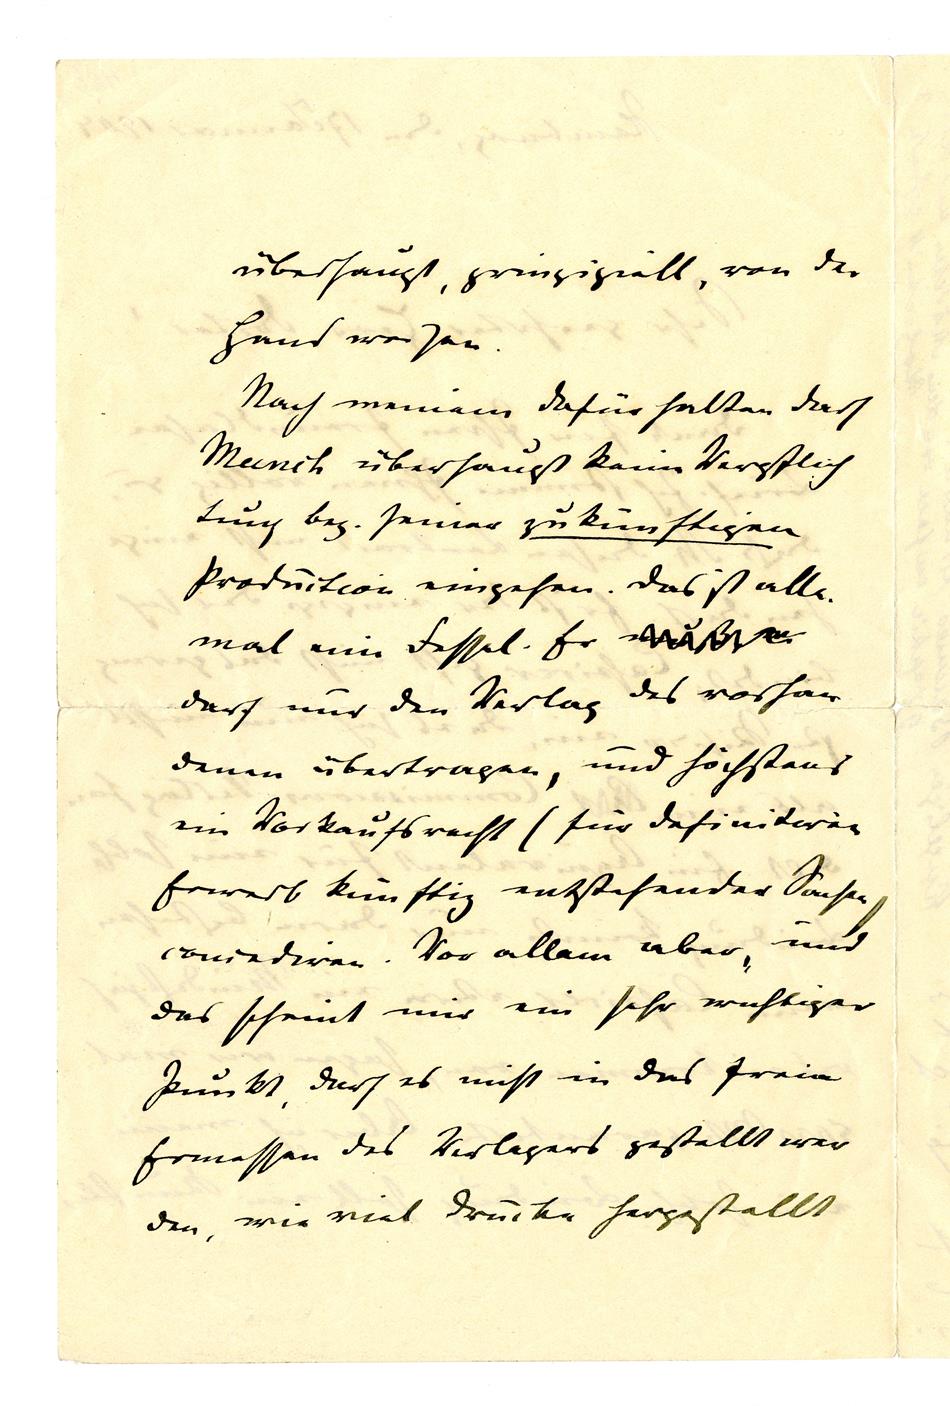 überhaupt, prinzipiell, von der
Hand weisen.
Nach meinem dafürhalten darf
Munch überhaupt keine Verpflich
tung bez. seiner zukünftigen
Production eingehen. Das ist alle-
mal eine Fessel. Er
darf nur den Verlag des vorhan
denen übertragen, und höchstens
ein Vorkaufsrecht (für definitiven
Erwerb künftig entstehender Sachen)
concediren. Vor allem aber, und
das scheint mir ein sehr wichtiger
Punkt, darf es nicht in das freie
Ermessen des Verlegers gestellt wer
den, wie viel Drucke hergestellt